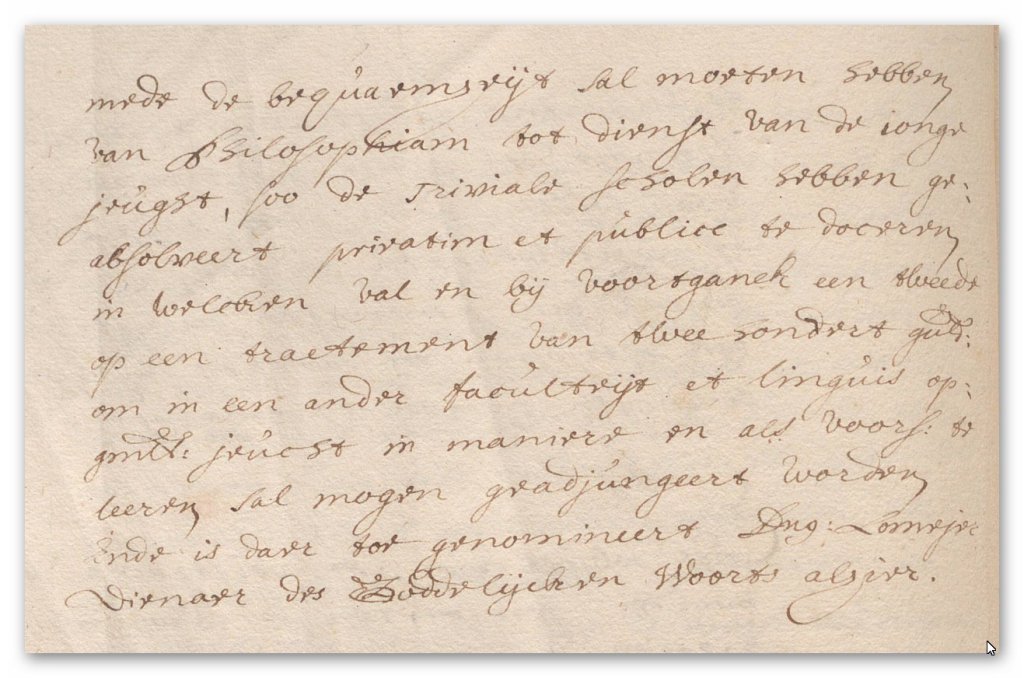 mede de bequaemheijt sal moeten hebben
van Philosophiam tot dienst van de ionge
jeught, soo de Triviale scholen hebben ge:
absolveert privatim et publice te doceren
in welcken val en bij voortganck een tweede
op een tractement van twee hondert guld:
om in een ander faculteijt et linguis op:
gmlt: jeucht in maniere en als voors: te
leeren sal mogen geadjungeert worden
Ende is daer toe genomineert Dns: Lomejer
Dienaer des Goddelijcken Woorts alhier.